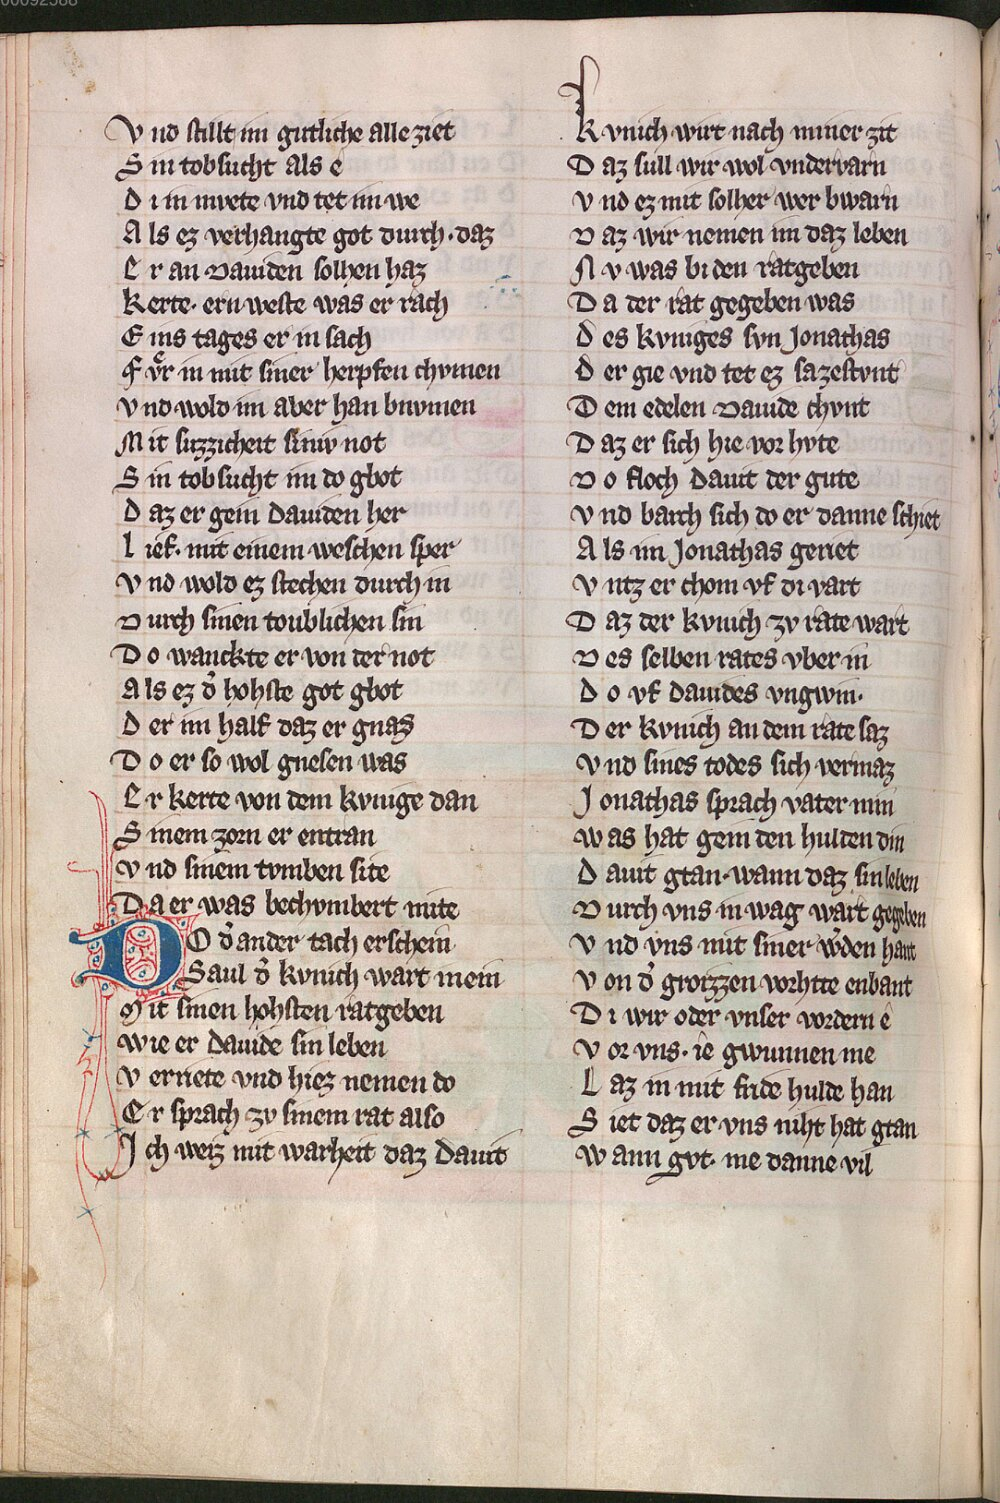 00092588
Vnd stillt im gutliche alle ziet
Sin tobsucht als e
Di in mvete vnd tet im we
Als ez verhangte got durch · daz
Er an Dauiden solhen haz
Kerte · ern weste was er rach
Eins tages er in sach
Fvͤr in mit siner herpfen chvmen
Vnd wold im aber han bnvmen
Mit suzzicheit siniv not
Sin tobsucht im do gbot
Daz er gein Dauiden her
Lief · mit einem weschen sper
Vnd wold ez stechen durch in
Durch sinen toublichen sin
Do wanckte er von der not
Als ez d̉ hohste got gbot
Der im half daz er gnas
Do er so wol gnesen was
Er kerte von dem kvnige dan
Sinem zorn er entran
Vnd sinem tvmben site
Da er was bechvmbert mite
DO d̉ ander tach erschein
Saul d̉ kvnich wart inein
Mit sinen hohsten ratgeben
Wie er Dauide sin leben
Verriete vnd hiez nemen do
Er sprach zv sinem rat also
Ich weiz mit warheit daz Dauit
Kvnich wirt nach miner zit
Daz sull wir wol vndervarn
Vnd ez mit solher wer bwarn
Daz wir nemen im daz leben
Nv was bi den ratgeben
Da der rat gegeben was
Des kvniges svn Jonathas
Der gie vnd tet ez sazestvnt
Dem edelen Dauide chvnt
Daz er sich hie vor hvte
Do floch Dauit der gute
Vnd barch sich do er danne schiet
Als im Jonathas geriet
Vntz er chom vf di vart
Daz der kvnich zv rate wart
Des selben rates vber in
Do vf Dauides vngwin ·
Der kvnich an dem rate saz
Vnd sines todes sich vermaz
Jonathas sprach vater min
Was hat gein den hulden din
Dauit gtan · wann daz sin leben
Durch vns in wag wart gegeben
Vnd vns mit siner w̉den hant
Von d̉ groizzen vorhtte enbant
Di wir oder vnser vordern ê
Vor vns · ie gwunnen me
Laz in mit fride hulde han
Siet daz er vns niht hat gtan
Wann gvt · me danne vil